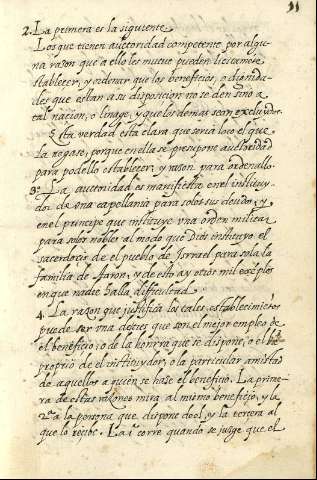 11
2. La primera es la siguiente
Los que tienen auctoridad competente por algu-
na razon que a ello les mueue pueden licitamente
establecer, y ordenar que los beneficios, o dignida-
des que estan a su disposicion no se den sino a
tal nacion, o linage, y que los demas sean excluydos.
Esta verdad esta clara que seria loco el que
la negase, porque en ella se presupone auctoridad
para podello establecer, y razon para ordenallo.
3ª La auctoridad es manifiesta en el instituy-
dor de una capellania para solos sus deudos, y
en el principe que instituye vna orden militar
para solos nobles al modo que Dios instituyo el
sacerdocio de el pueblo de Israel para sola la
familia de Aaron, y de esto ay otros mil exemplos
en que nadie halla dificultad.
4. La razon que justifica los tales establecimientos
puede ser vna de tres que son el mejor empleo de
el beneficio; o de la honrra que se dispone, o el bien
proprio de el instituydor, o la particular amistad
de aquellos a quien se haze el beneficio. La prime-
ra de estas razones mira al mismo beneficio, y la
2ª a la persona que dispone del, y la tercera al
que lo recibe. La 1ª corre quando se juzga que el